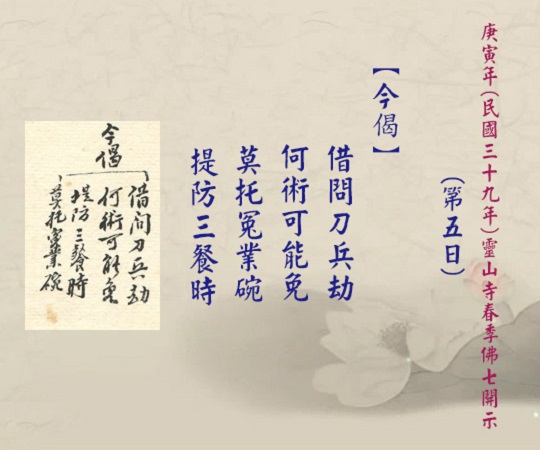 庚寅年(民國三十九年)靈山寺春季佛七開示
(第五日)
【今偈】
借問刀兵劫
何術可能免
莫托冤業碗
提防三餐時
今偈
借問刀兵劫
何術可能免
堤防三餐時
莫托冤業碗